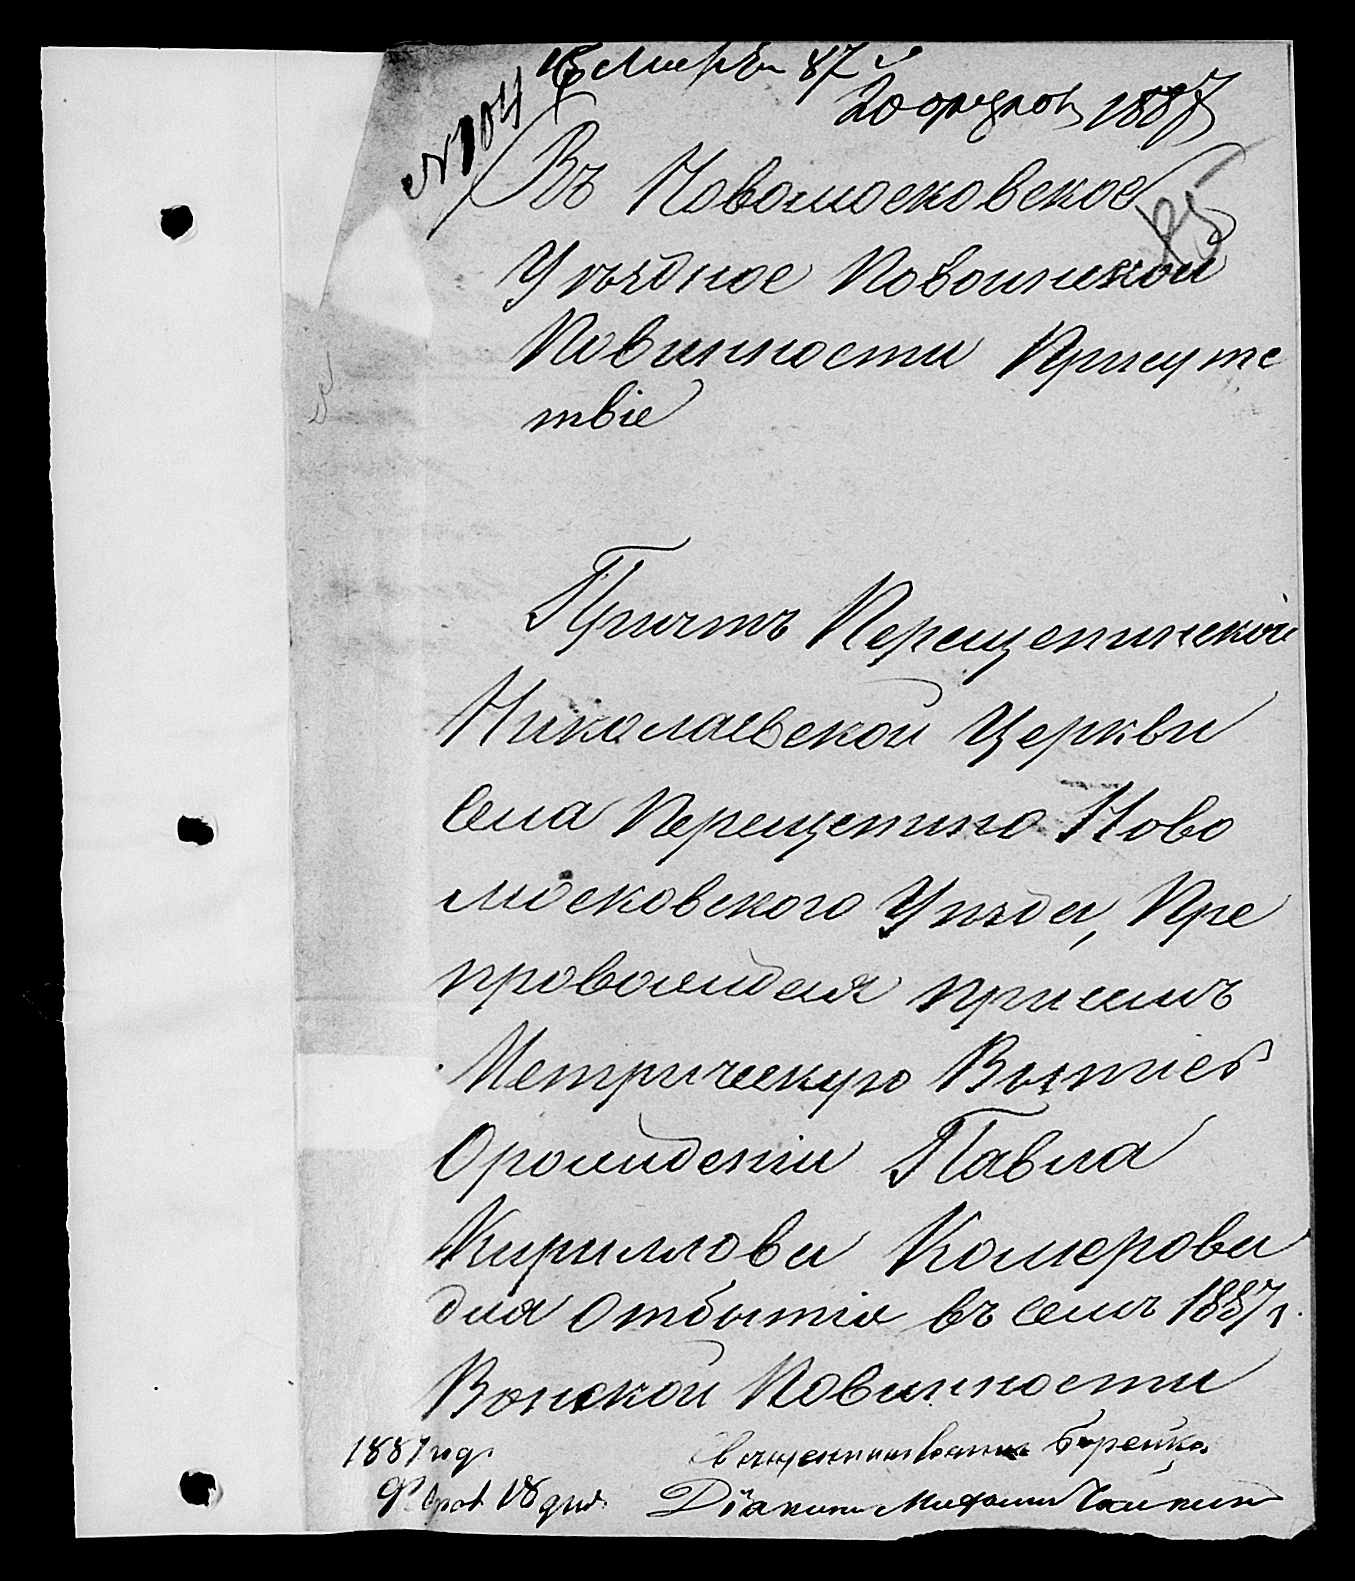 № 104
87 г
20 феврал 1887
85
Въ Новомосковское
Уѣздное Повоинской
Повинности Присутс
твіе
Причтъ Перещепинской
Николаевской Церкви
Села Перещепина Ново
московского Уѣзда, Пре
провождая присемъ
Метрическую Выпись
Орождении Павла
Кириллова Комерова
для Отбытія въ семъ 1887 г.
Воиской Повинности
1887 год.
Феврал 18 дня.
Священникъ
Діаконъ Михаилъ Чайкинъ